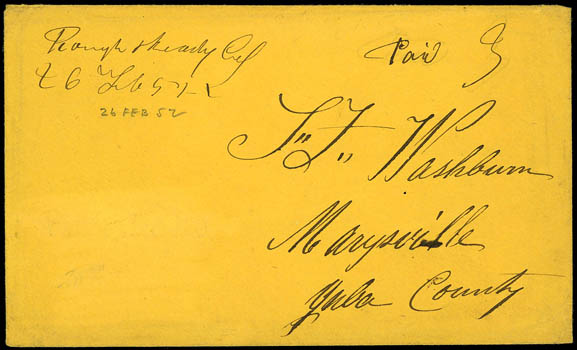 Rough & Ready Cal
26 Feb 52
26 FEB 52
Paid 3
J. F. Washburn
Marysville
Yuba County